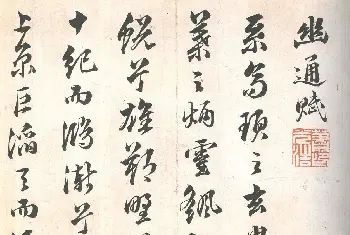 幽通賦
系高頊之玄
葉之炳靈飖
蛻兮雄朔野
十紀而鴻漸兮
上京巨滔天而